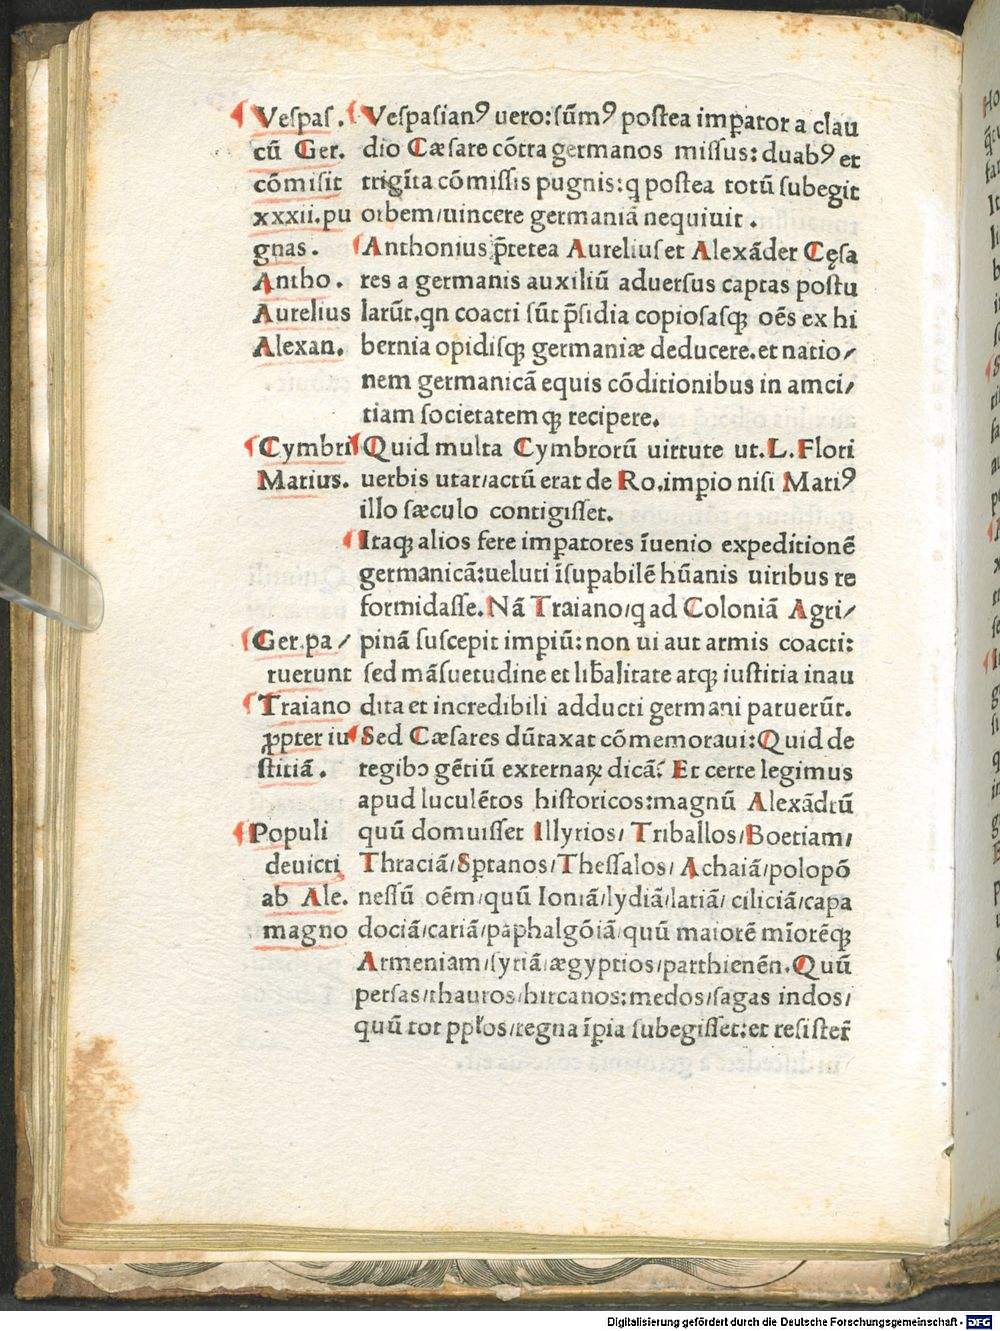 ¶Veſpaſ.
cū Ger.
cōmiſit
xxxii.pu
gnas.
Antho.
Aurelius
Alexan.
¶Cymbri
Marius.
¶Ger.pa/
tuerunt
¶Traiano
ꝓpter iu
ſtitiā.
¶Populi
deuicti
ab Ale.
magno
¶Veſpaſianꝰ uero:ſūmꝰ poſtea imꝑator a clau
dio Cæſare cōtra germanos miſſus:duabꝰ et
trigīta cōmiſſis pugnis:q poſtea totū ſubegit
orbem/uincere germaniā nequiuit.
¶Anthonius p̄terea Aurelius et Alexāder Cęſa
res a germanis auxiliū aduerſus captas poſtu
larūt.qn coacti ſūt p̄ſidia copioſaſqꝫ oēs ex hi
bernia opidiſqꝫ germaniæ deducere.et natio/
nem germanicā equis cōditionibus in amci/
tiam ſocietatem qꝫ recipere.
¶Quid multa Cymbrorū uirtute ut.L.Flori
uerbis utar/actū erat de Ro.impio niſi Mariꝰ
illo ſæculo contigiſſet.
¶Itaqꝫ alios fere imꝑatores īuenio expeditionē
germanicā:ueluti īſuꝑabilē hūanis uiribus re
formidaſſe.Nā Traiano/q ad Coloniā Agri/
pinā ſuſcepit impiū:non ui aut armis coacti:
ſed māſuetudine et lib̄alitate atqꝫ iuſtitia inau
dita et incredibili adducti germani paruerūt.
¶Sed Cæſares dūtaxat cōmemoraui:Quid de
regibɔ gētiū externaꝝ dicā? Et certe legimus
apud luculētos hiſtoricos:magnū Alexādrū
quū domuiſſet Illyrios/ Triballos/Boetiam/
Thraciā/Sꝑtanos/Theſſalos/ Achaiā/polopō
neſſū oēm/quū Ioniā/lydiā/latiā/ ciliciā/capa
dociā/cariā/paphalgōiā/quū maiorē mīorēqꝫ
Armeniam/ſyriā/ægyptios/parthienēn.Quū
perſas/thauros/hircanos:medos/ſagas indos/
quū tot pplōs/regna īpia ſubegiſſet:et reſiſter̄
Digitalisierung gefördert durch die Deutsche Forschungsgemeinschaft - DFG